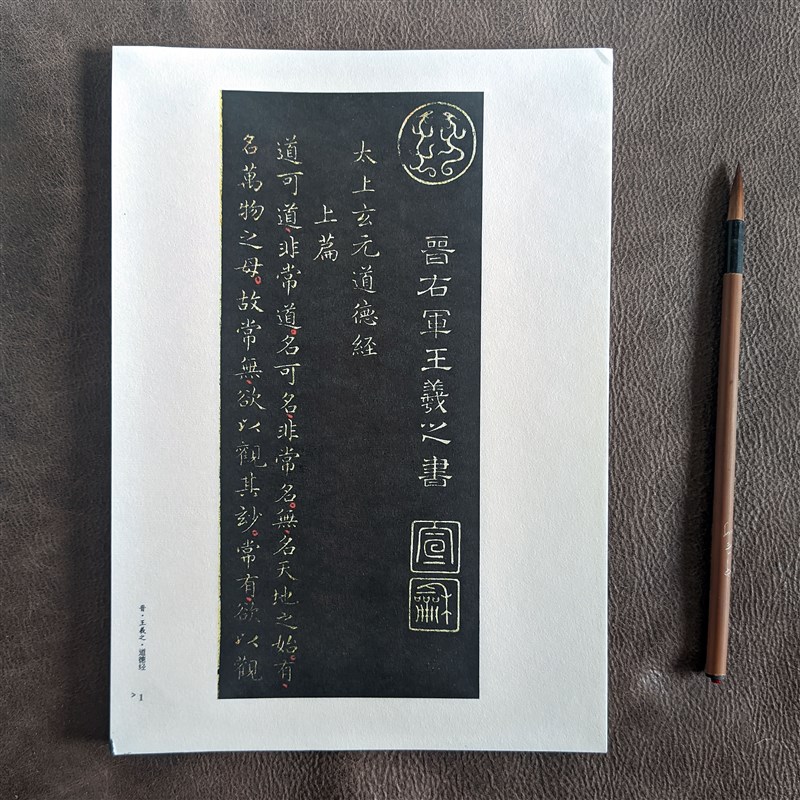 晉右軍王羲之書
宣
龢
太上玄元道德經
上篇
道可道、非常道。名可名、非常名。無、名天地之始。有、
名萬物之母。故常無、欲以觀其玅。常有、欲以觀
晉·王羲之·道德经
> 1